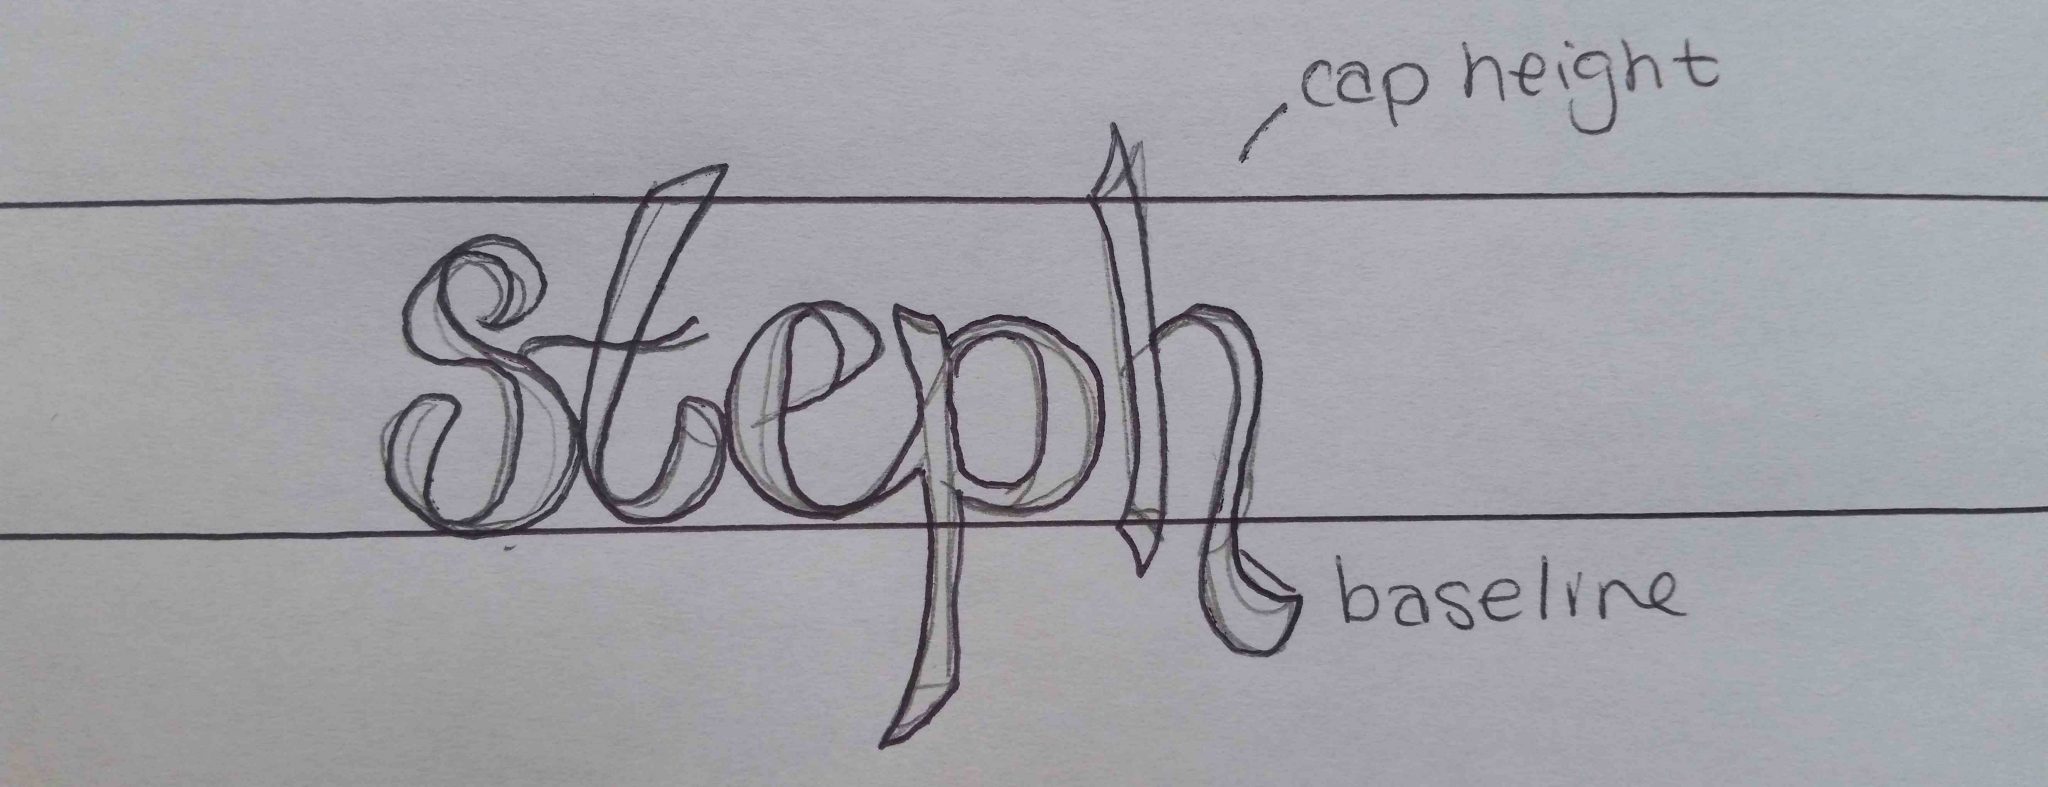 cap height
Steph
baseline